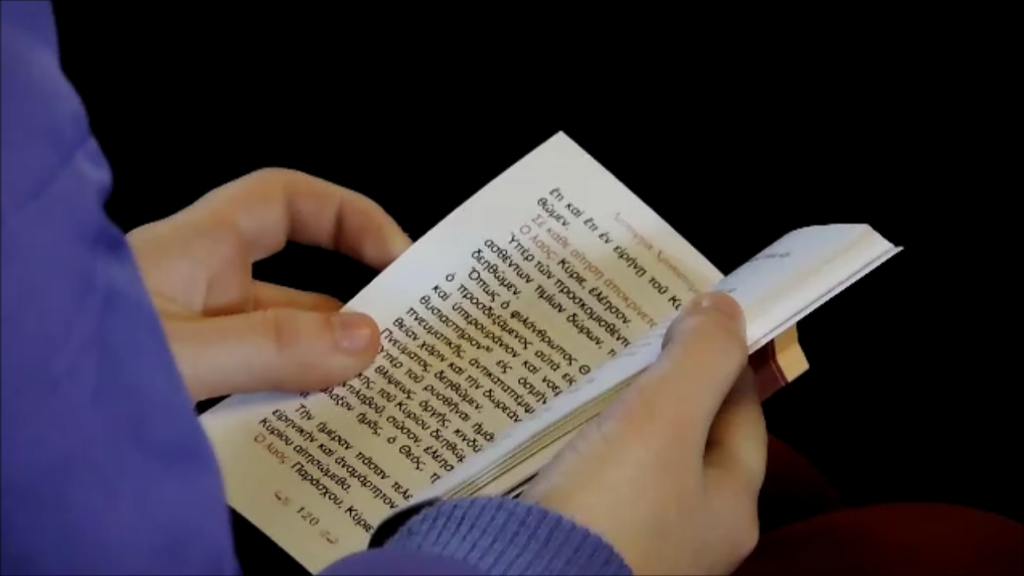 ἔτι καὶ ἔτι ἐν εἰρήνῃ τοῦ
θῶμεν.
Σὲ κάθε αἴτηση
Ὁ λαός: Κύριε, ἐλέησον.
Ὑπὲρ τῶν προσκομισθέ
ασθέντων τιμίων δώρων, τ
δεηθῶμεν.
Ὅπως ὁ φιλάνθρωπος Θ
ὁ προσδεξάμενος αὐτὰ εἰς
καὶ ὑπερουράνιον καὶ νοε
θυσιαστήριον εἰς ὀσμὴ
πνευματικῆς, ἀντικαταπέμψ
θείαν χάριν καὶ τὴν δωρεὰν
δεηθῶμεν.
τοῦ ῥυσθῆναι ἡμᾶς
θλίψεως, ὀργῆς, κινδύ
τοῦ Κυρίου δεηθῶμ
σῶσον, ἐλέησ
ἡμᾶς, ὁ Θεός, τ
Τὴν ἡμέραν πᾶσαν τελε
εἰρηνικὴν καὶ ἀναμάρτητον
Κυρίου αἰτησώμεθα.
Ὁ λαός: Παράσχου, Κύριε
120